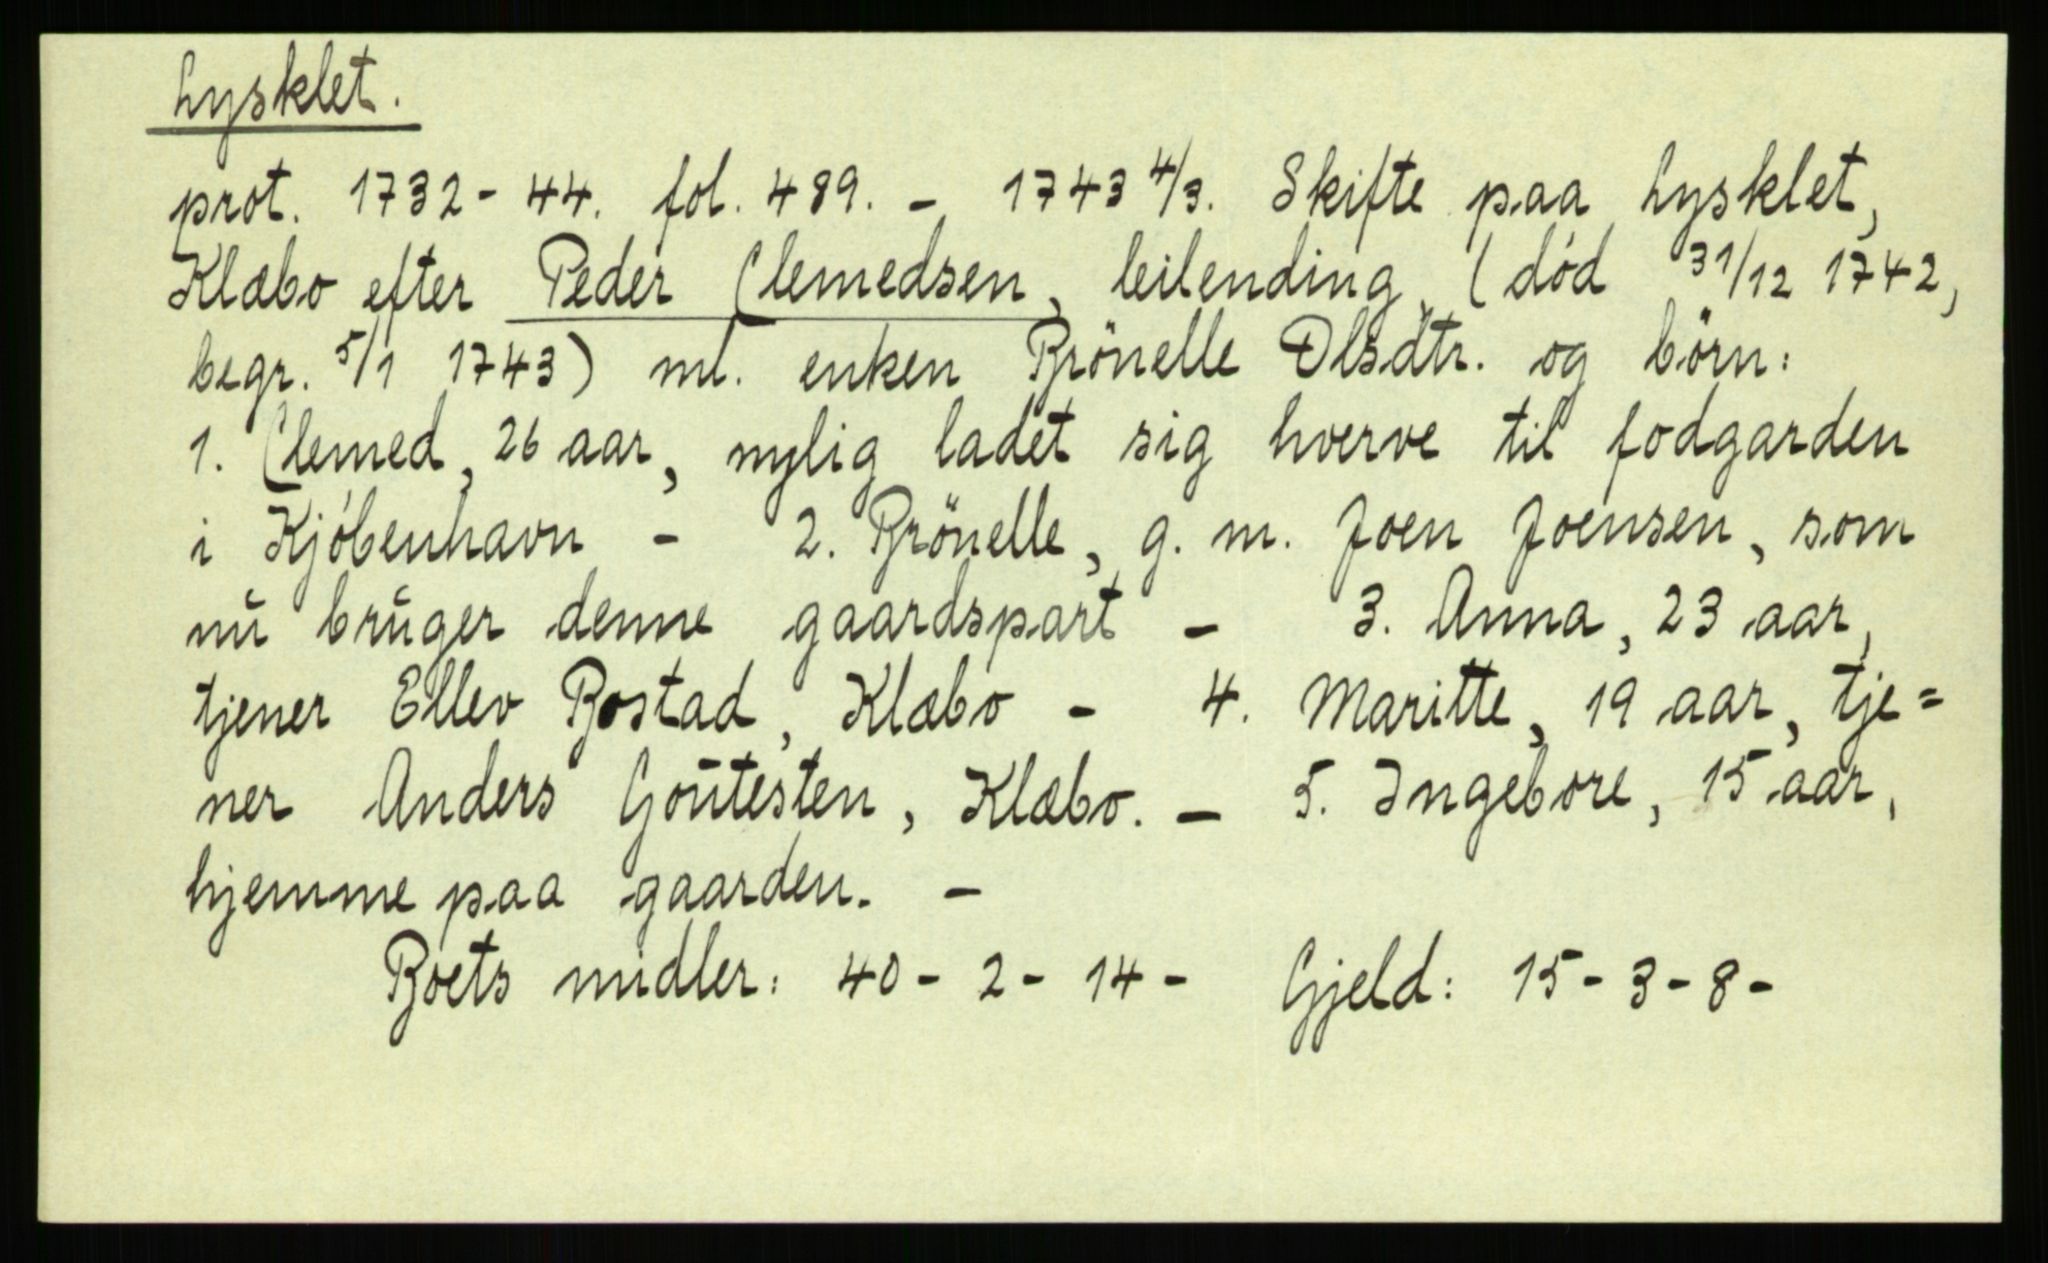 Lysklet.
prot. 1732-44. fol. 489. - 1743 4/3. Skifte paa Lysklet,
Klæbo efter Peder Clemedsen, leilending, (død 31/12 1742,
begr. 5/1 1743) ml. enken Brönelle Olsdtr. og börn:
1. Clemed, 26 aar, nylig ladet sig hverve til fodgarden
i Kjøbenhavn - 2. Brönelle, g. m. Joen Joensen, som
nu bruger denne gaardspart - 3. Anna, 23 aar,
tjener Ellev Bostad, Klæbo - 4. Maritte, 19 aar, tje=
ner Anders Goutesten, Klæbo. - 5. Ingebore, 15 aar,
hjemme paa gaarden. -
Boets midler: 40 - 2 - 14 - Gjeld: 15 - 3 - 8 -